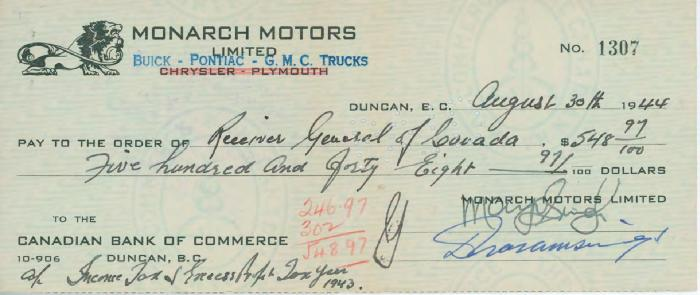 MONARCH MOTORS
LIMITED
BUICK - PONTIAC - G.M.C. TRUCKS
CHRYSLER - PLYMOUTH
No. 1307
DUNCAN, B.C. August 30th 1944
PAY TO THE ORDER OF Receiver General of Canada. $548 97/100
Five hundred and forty Eight 97/100 DOLLARS
MONARCH MOTORS LIMITED
246.97
302
548.97
TO THE
CANADIAN BANK OF COMMERCE
10-906 DUNCAN, B.C.
Income Tax & Excess Profit Tax Year
1943.